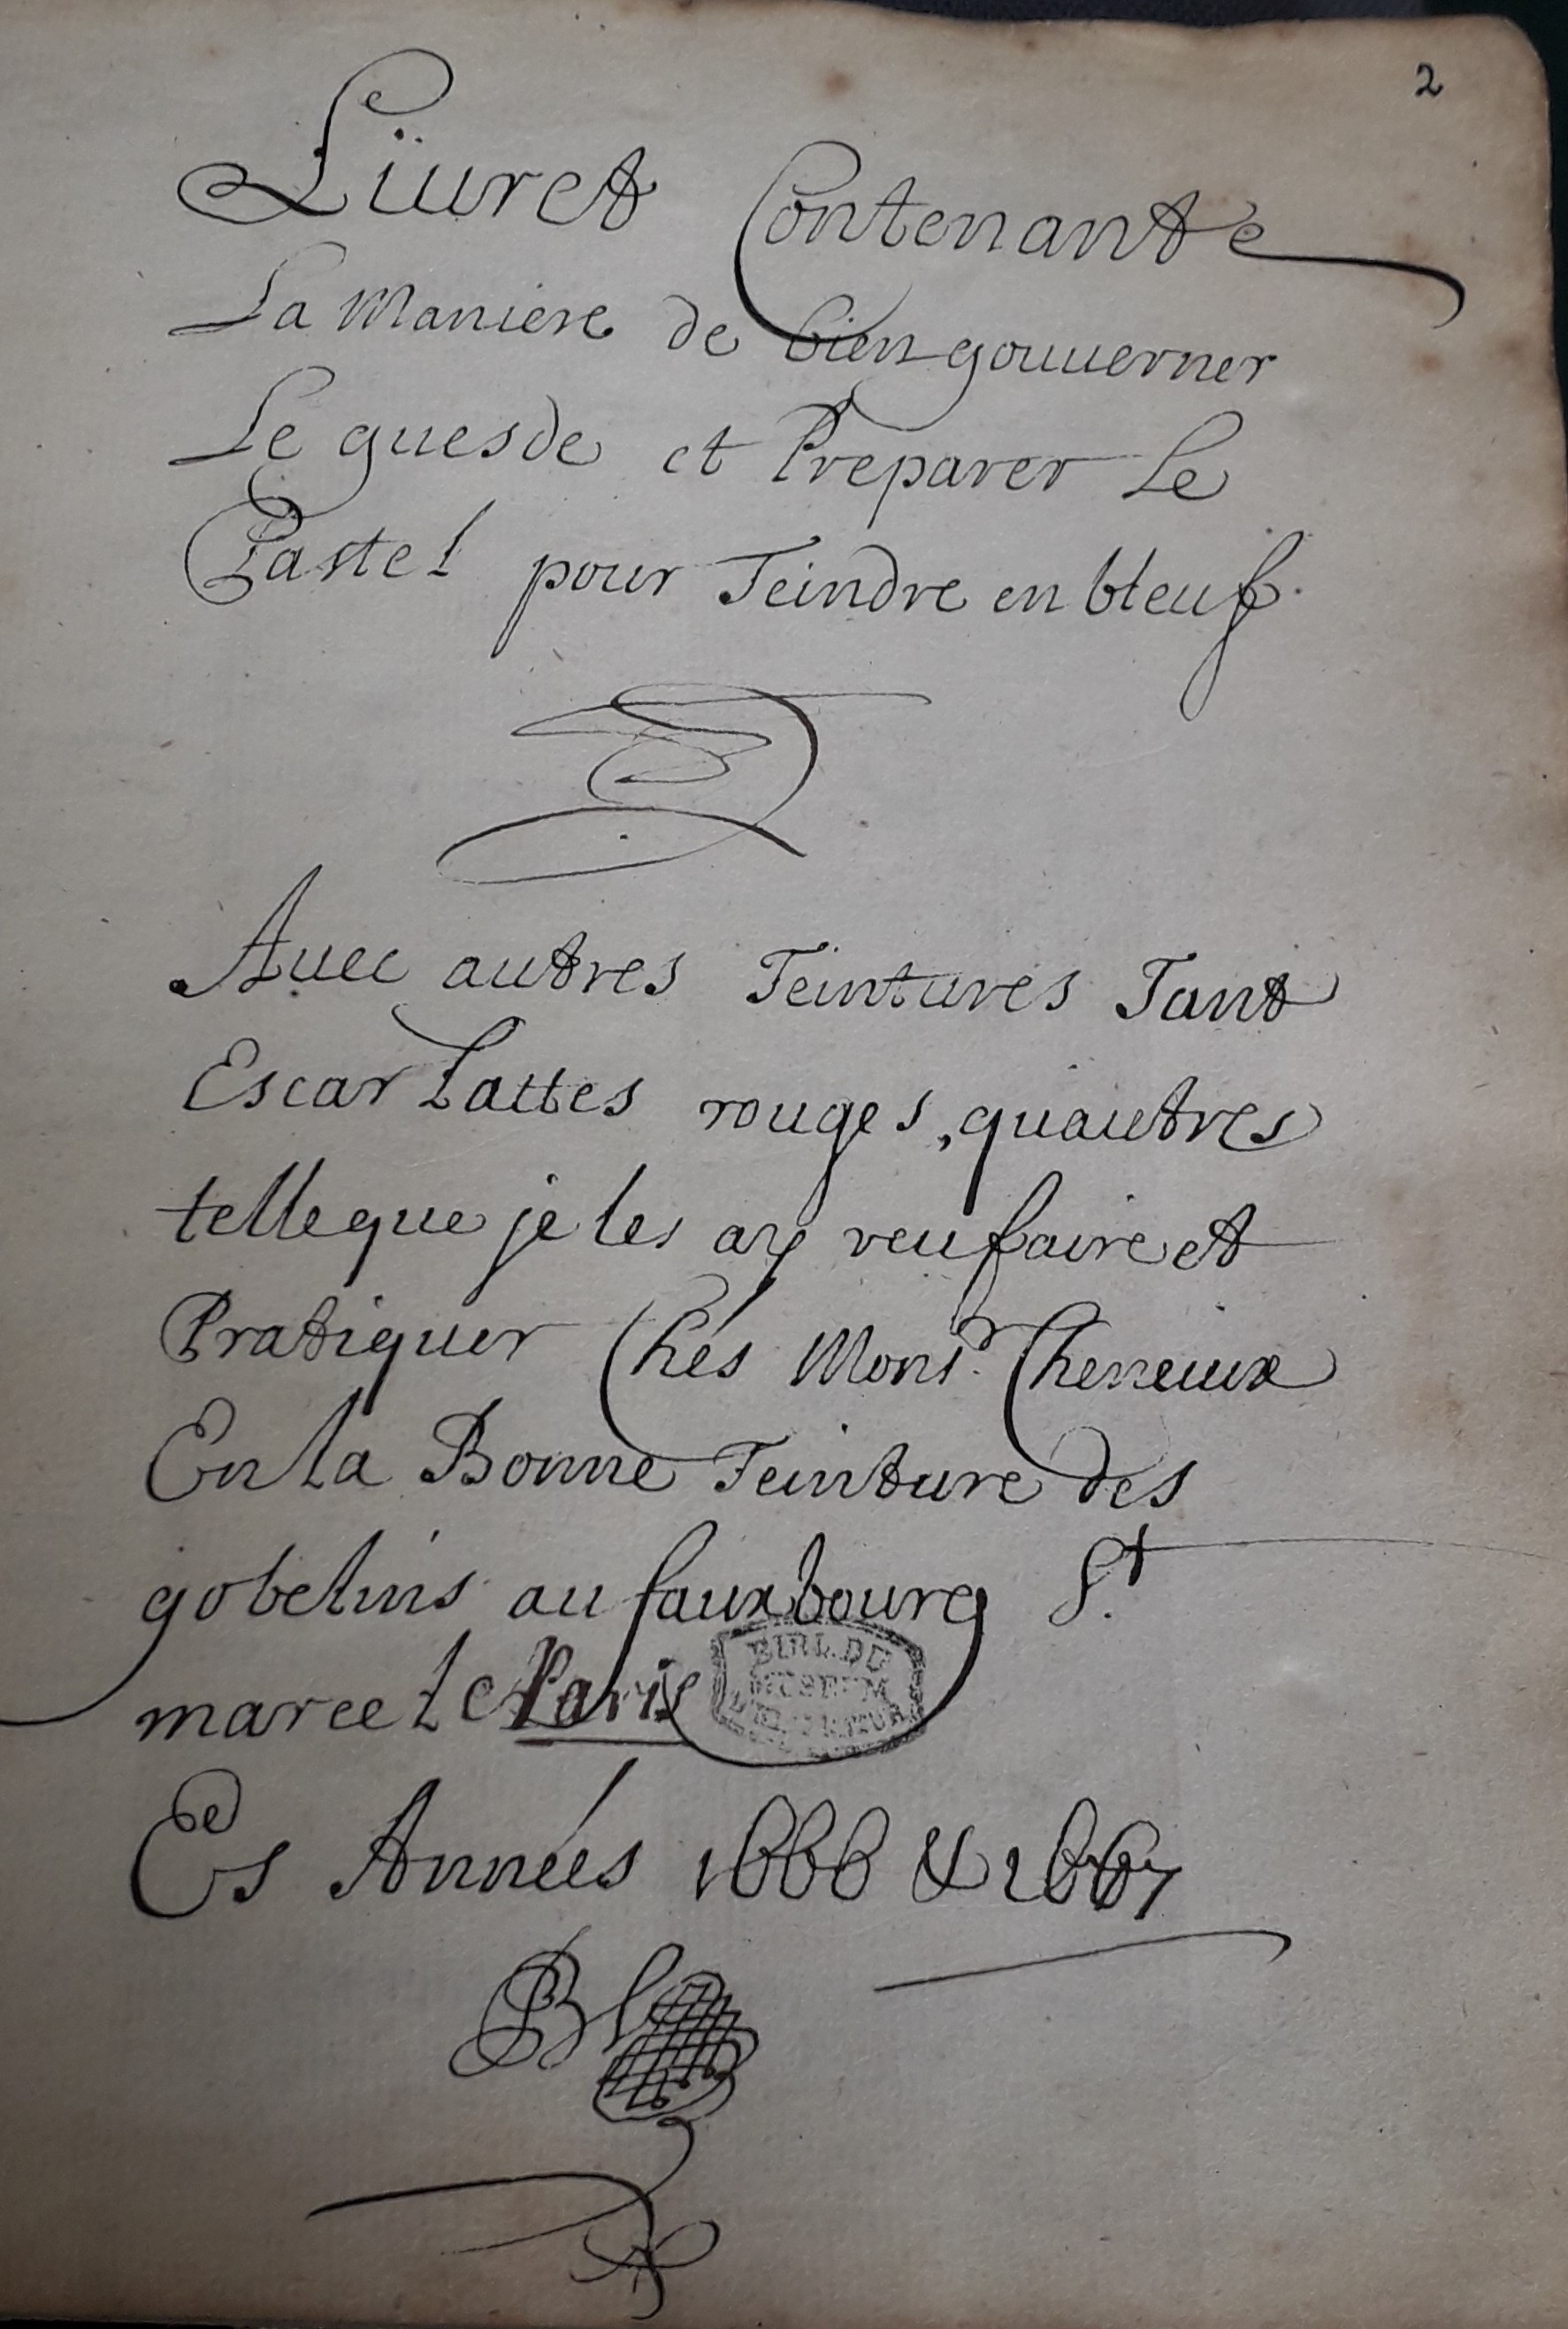 2
Liuret Contenante
La Maniere de bien gouuerner
Le guesde et Preparer Le
Pastel pour Teindre en bleuf.
Auec autres Teintures Tant
Escarlattes rouges, quautres
telle que je les ay veu faire et
Pratiquer Chés Monsr. Cheneuix
En la Bonne Teinture des
gobelins au fauxbourg St.
marcel Paris
BIBL. DU
MUSEUM
Es Années 1666 & 1667